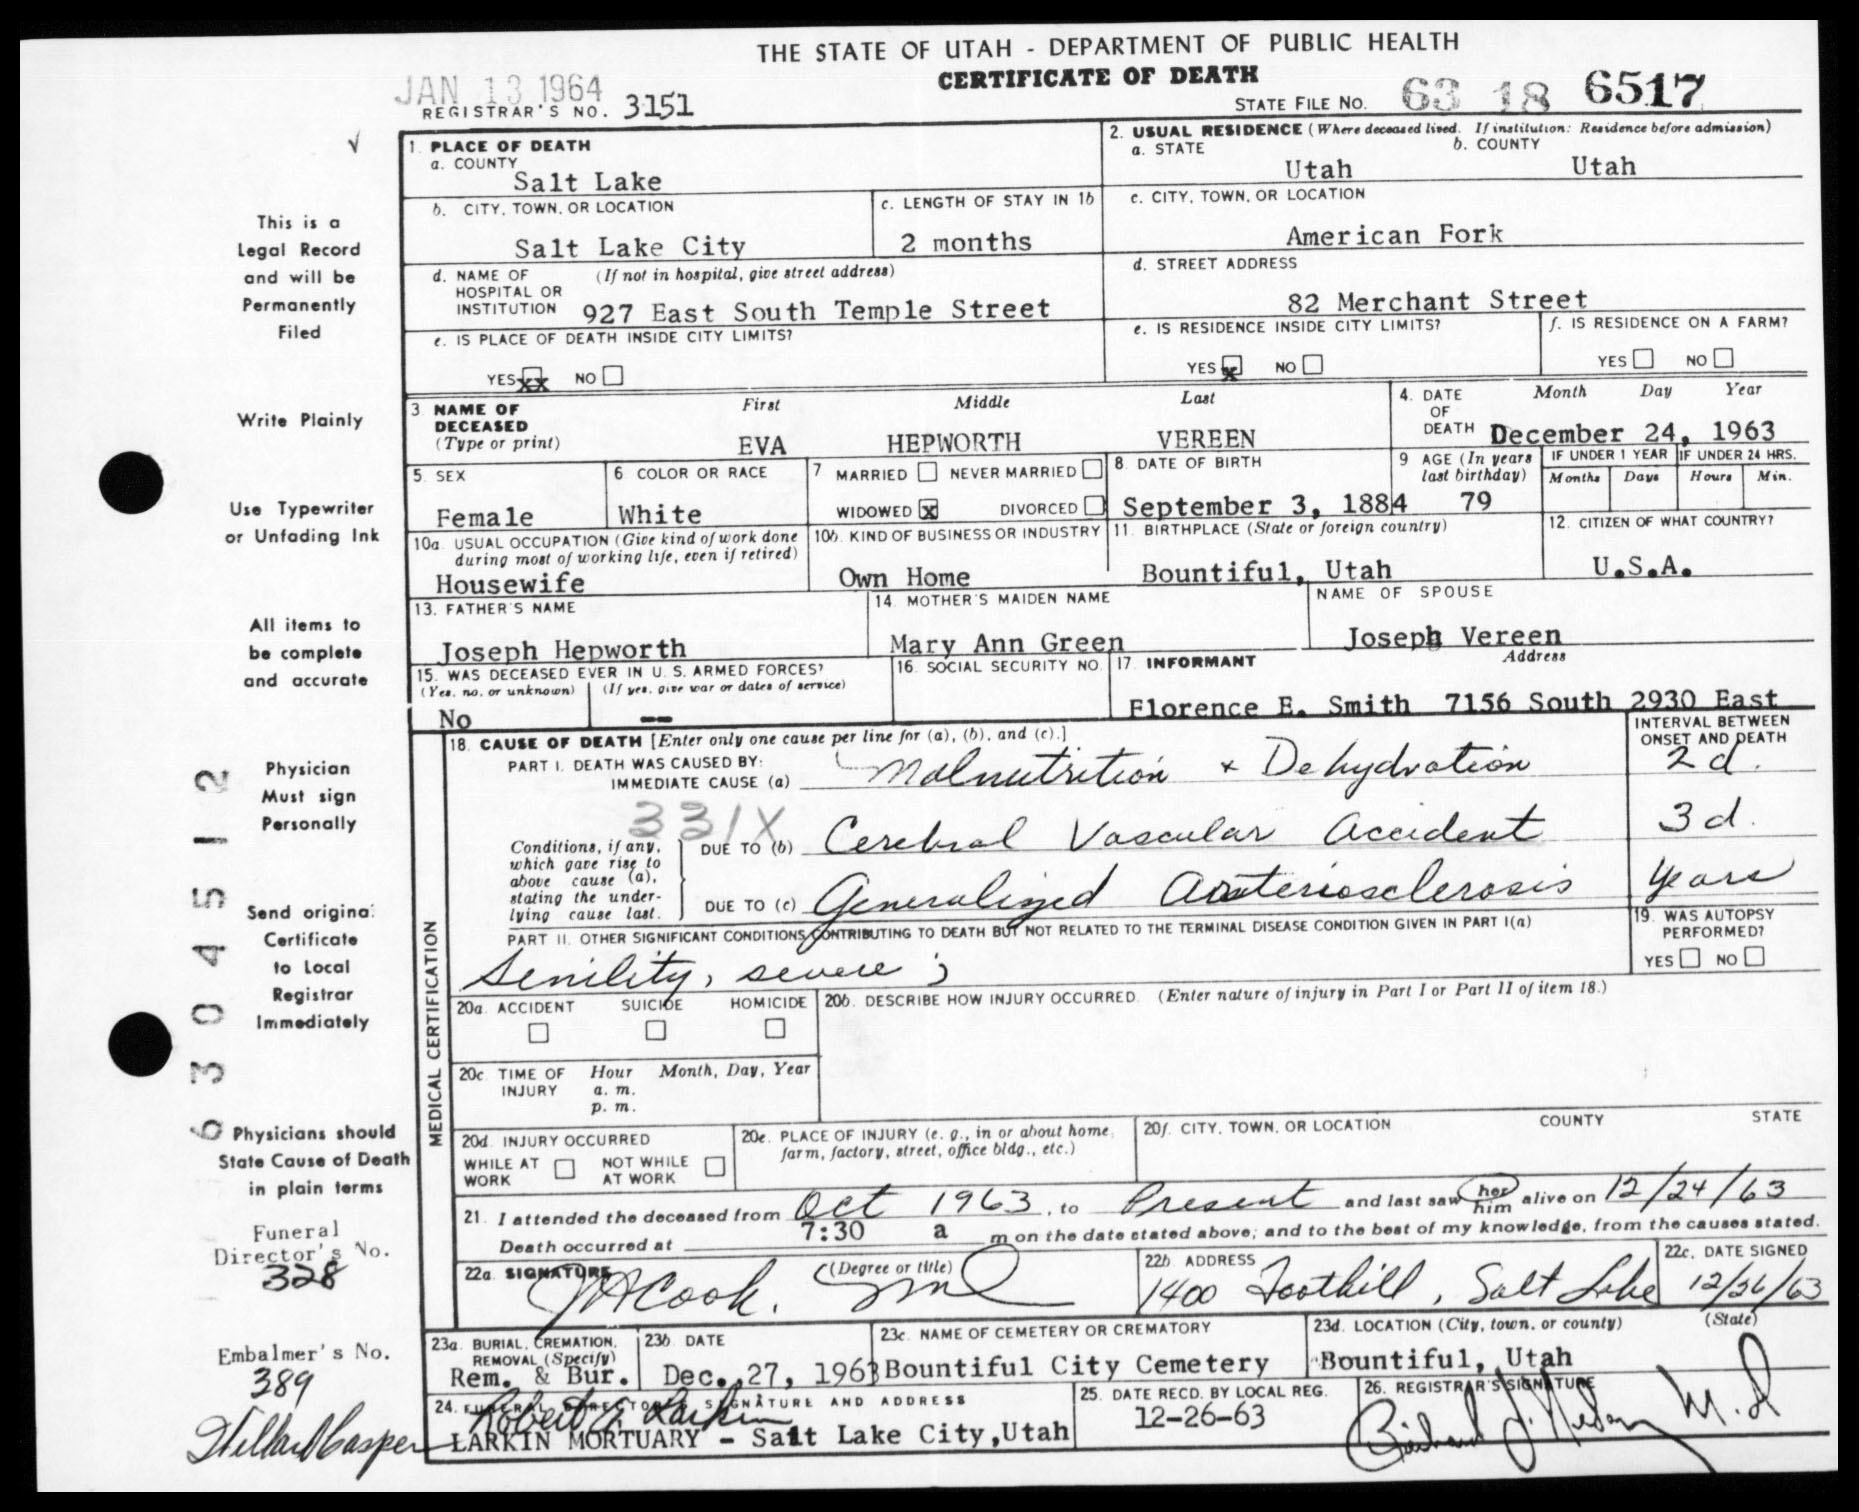 THE STATE OF UTAH - DEPARTMENT OF PUBLIC HEALTH
CERTIFICATE OF DEATH
JAN 13 1964
REGISTRAR'S NO. 3151
STATE FILE NO. 63 18 6517
1. PLACE OF DEATH
a. COUNTY
Salt Lake
2. USUAL RESIDENCE (Where deceased lived. If institution: Residence before admission)
a. STATE b. COUNTY
Utah Utah
b. CITY, TOWN, OR LOCATION
Salt Lake City
c. LENGTH OF STAY IN 1b
2 months
c. CITY, TOWN, OR LOCATION
American Fork
d. NAME OF HOSPITAL OR INSTITUTION (If not in hospital, give street address)
927 East South Temple Street
d. STREET ADDRESS
82 Merchant Street
e. IS PLACE OF DEATH INSIDE CITY LIMITS?
YES XX NO
e. IS RESIDENCE INSIDE CITY LIMITS?
YES X NO
f. IS RESIDENCE ON A FARM?
YES NO
3 NAME OF DECEASED (Type or print)
First Middle Last
EVA HEPWORTH VEREEN
4. DATE OF DEATH Month Day Year
December 24, 1963
5. SEX
Female
6 COLOR OR RACE
White
7 MARRIED NEVER MARRIED
WIDOWED X DIVORCED
8. DATE OF BIRTH
September 3, 1884
9 AGE (In years last birthday)
79
IF UNDER 1 YEAR IF UNDER 24 HRS.
Months Days Hours Min.
10a. USUAL OCCUPATION (Give kind of work done during most of working life, even if retired)
Housewife
10b. KIND OF BUSINESS OR INDUSTRY
Own Home
11. BIRTHPLACE (State or foreign country)
Bountiful, Utah
12. CITIZEN OF WHAT COUNTRY?
U.S.A.
13. FATHER'S NAME
Joseph Hepworth
14. MOTHER'S MAIDEN NAME
Mary Ann Green
NAME OF SPOUSE
Joseph Vereen
15. WAS DECEASED EVER IN U. S. ARMED FORCES?
(Yes, no, or unknown) (If yes, give war or dates of service)
No --
16. SOCIAL SECURITY NO.
17. INFORMANT Address
Florence E. Smith 7156 South 2930 East
MEDICAL CERTIFICATION
18. CAUSE OF DEATH [Enter only one cause per line for (a), (b), and (c).]
INTERVAL BETWEEN ONSET AND DEATH
PART I. DEATH WAS CAUSED BY:
IMMEDIATE CAUSE (a) Malnutrition + Dehydration 2d.
331X
Conditions, if any, which gave rise to above cause (a), stating the underlying cause last.
DUE TO (b) Cerebral Vascular Accident 3d.
DUE TO (c) Generalized Arteriosclerosis years
PART II. OTHER SIGNIFICANT CONDITIONS CONTRIBUTING TO DEATH BUT NOT RELATED TO THE TERMINAL DISEASE CONDITION GIVEN IN PART I(a)
Senility, severe;
19. WAS AUTOPSY PERFORMED?
YES NO
20a. ACCIDENT SUICIDE HOMICIDE
20b. DESCRIBE HOW INJURY OCCURRED. (Enter nature of injury in Part I or Part II of item 18.)
20c. TIME OF INJURY Hour Month, Day, Year
a. m.
p. m.
20d. INJURY OCCURRED
WHILE AT WORK NOT WHILE AT WORK
20e. PLACE OF INJURY (e. g., in or about home, farm, factory, street, office bldg., etc.)
20f. CITY, TOWN, OR LOCATION COUNTY STATE
21. I attended the deceased from Oct 1963, to Present and last saw her him alive on 12/24/63
Death occurred at 7:30 a m on the date stated above; and to the best of my knowledge, from the causes stated.
22a. SIGNATURE (Degree or title)
Cook. MD
22b. ADDRESS
1400 Foothill, Salt Lake
22c. DATE SIGNED
12/26/63
23a. BURIAL, CREMATION, REMOVAL (Specify)
Rem. & Bur.
23b. DATE
Dec. 27, 1963
23c. NAME OF CEMETERY OR CREMATORY
Bountiful City Cemetery
23d. LOCATION (City, town, or county) (State)
Bountiful, Utah
24. FUNERAL DIRECTOR'S SIGNATURE AND ADDRESS
Robert E. Larkin
LARKIN MORTUARY - Salt Lake City, Utah
25. DATE RECD. BY LOCAL REG.
12-26-63
26. REGISTRAR'S SIGNATURE
M.D.
This is a
Legal Record
and will be
Permanently
Filed
Write Plainly
Use Typewriter
or Unfading Ink
All items to
be complete
and accurate
Physician
Must sign
Personally
Send original
Certificate
to Local
Registrar
Immediately
Physicians should
State Cause of Death
in plain terms
Funeral
Director's No.
328
Embalmer's No.
389
63045512